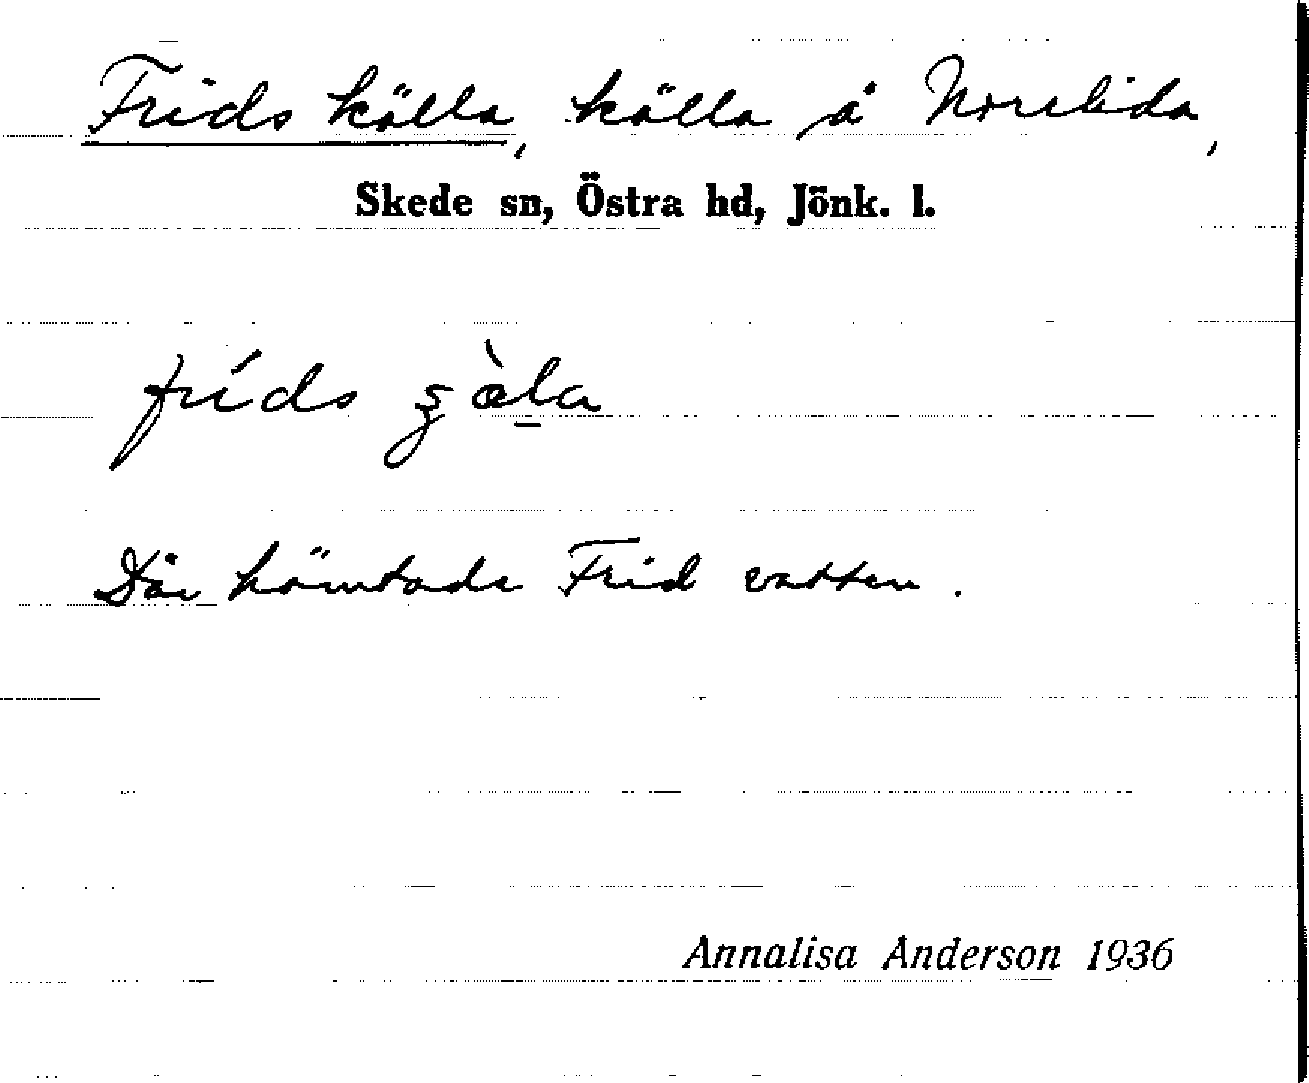 Frids källa, källa å Norrlida,
Skede sn, Östra hd, Jönk. l.
fríds
Där hämtade Frid vatten.
Annalisa Anderson 1936